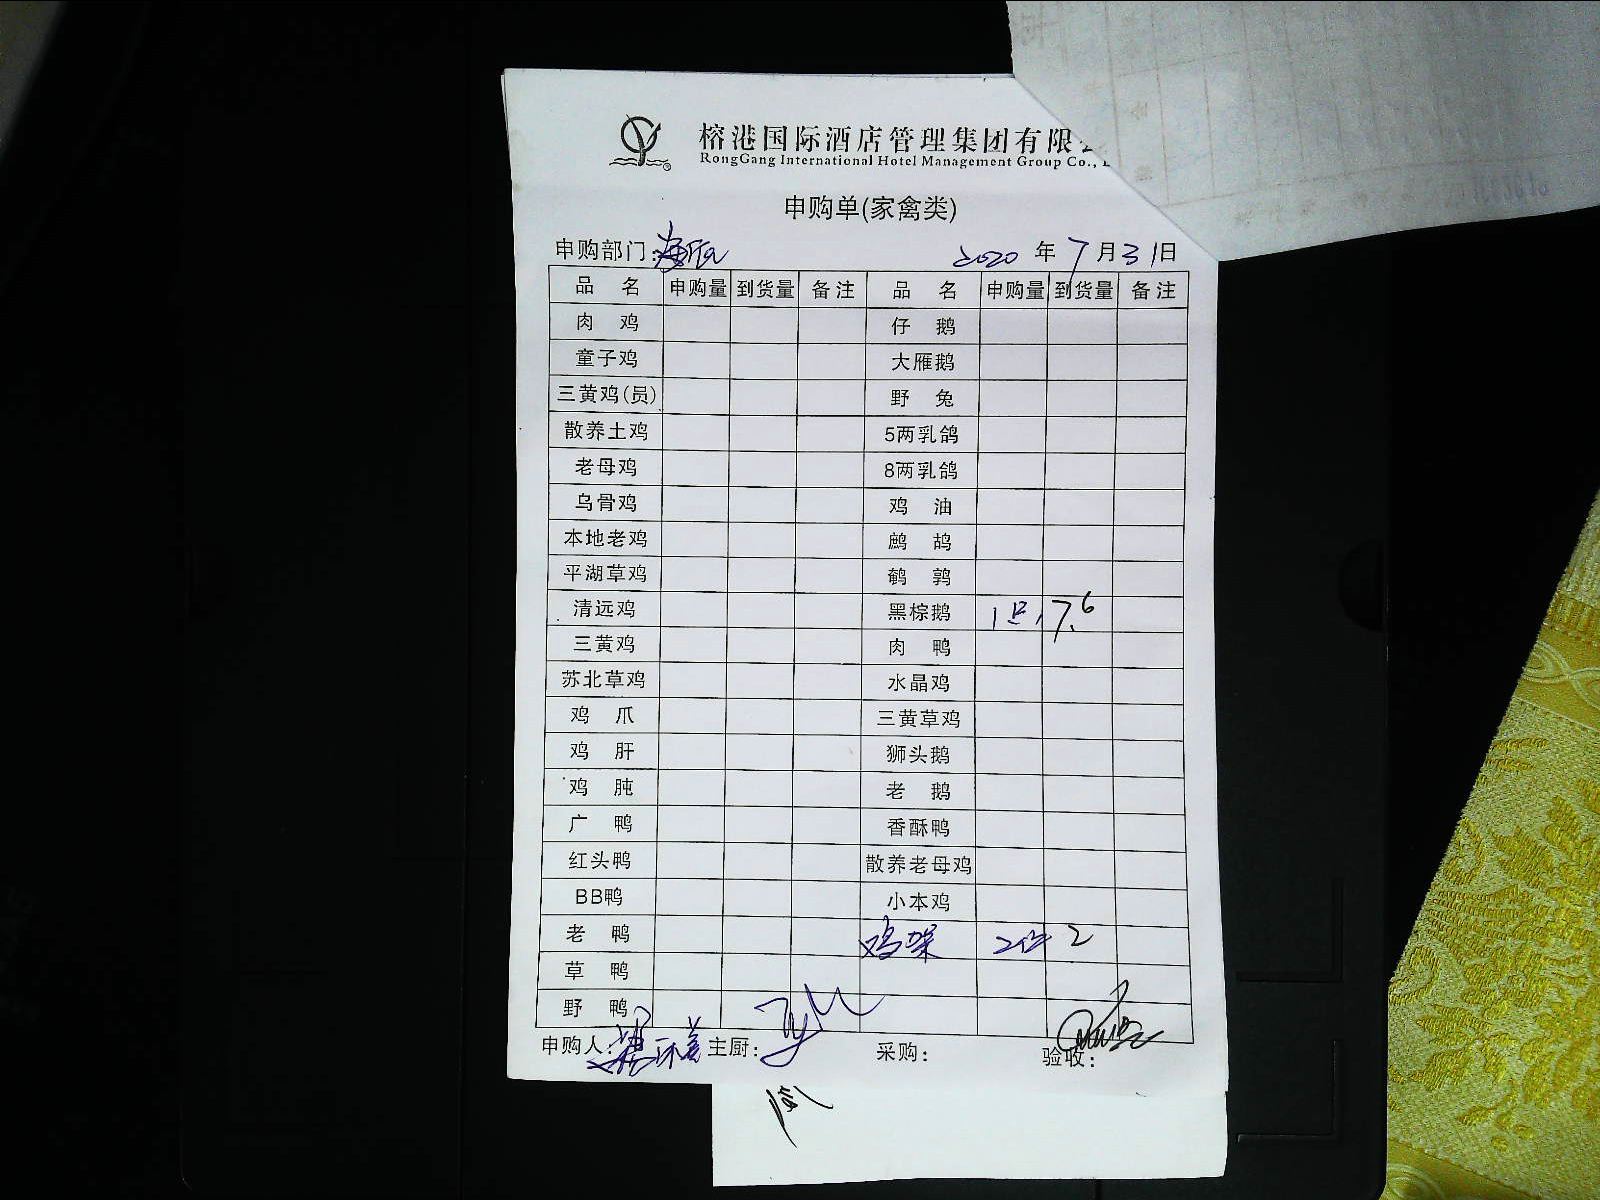 榕港国际酒店管理集团有限
RongGang International Hotel Management Group Co.,
申购单(家禽类)
申购部门: 2020 年 7 月 31 日
品 名 申购量 到货量 备注 品 名 申购量 到货量 备注
肉 鸡 仔 鹅
童子鸡 大雁鹅
三黄鸡(员) 野 兔
散养土鸡 5两乳鸽
老母鸡 8两乳鸽
乌骨鸡 鸡 油
本地老鸡 鹧 鸪
平湖草鸡 鹌 鹑
清远鸡 黑棕鹅 1只 7.6
三黄鸡 肉 鸭
苏北草鸡 水晶鸡
鸡 爪 三黄草鸡
鸡 肝 狮头鹅
鸡 肫 老 鹅
广 鸭 香酥鸭
红头鸭 散养老母鸡
BB鸭 小本鸡
老 鸭 鸡架 2个 2
草 鸭
野 鸭
申购人: 主厨: 采购: 验收: